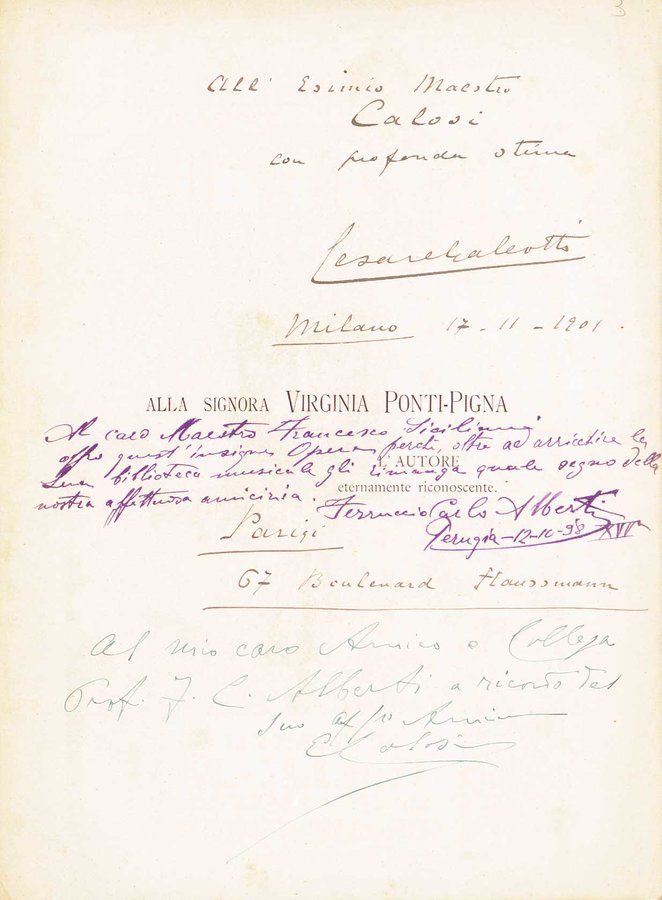 3
All' Esimio Maestro
Calosi
con profonda stima
Cesare Galeotti
Milano 17-11-1901.
ALLA SIGNORA VIRGINIA PONTI-PIGNA
Al caro Maestro Francesco Siciliani
offro quest'insigne Opera perchè, oltre ad arricchire la
Sua biblioteca musicale gli rimanga quale segno della
L'AUTORE
nostra affettuosa amicizia.
eternamente riconoscente.
Ferruccio Carlo Alberti
Parigi
Perugia-12-10-98 XVI
67 Boulevard Haussmann
Al mio caro Amico e Collega
Prof. F. C. Alberti a ricordo del
suo aff/o Amico
E Calosi